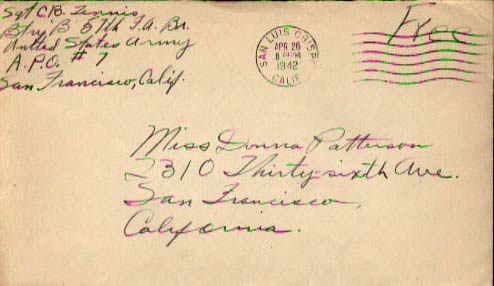 Sgt C.B. Tennis
Btry "B" 57th F.A. Bn.
United States Army
A.P.O. # 7
San Francisco, Calif.
SAN LUIS OBISPO
APR 26
1942
CALIF.
Free
Miss Donna Patterson
2310 Thirty-sixth Ave.
San Francisco,
California.